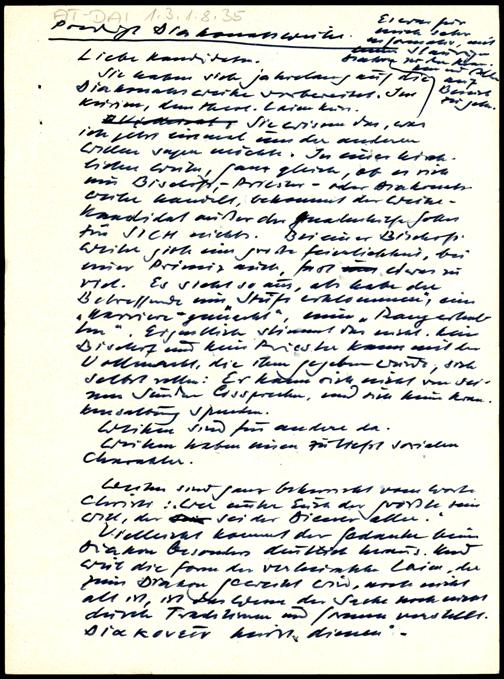 AT-DAI 1.3.1.8.35
Predigt Diakonatsweihe.
Es war für
mich sehr
Liebe Kandidaten.
Sie haben sich jahrelang auf die
Diakonatsweihe vorbereitet. Im
Sie wissen das, was
ich jetzt einmal um der anderen
willen sagen möchte. In einer kirch-
lichen Weihe, ganz gleich, ob es sich
um Bischofs-, Priester- oder Diakonats-
weihe handelt, bekommt der Weihe-
kandidat außer der Gnadenhilfe Gottes
für SICH nichts. Bei einer Bischofs-
weihe gibt es eine große Feierlichkeit, bei
einer Primiz auch, fast etwas zu
viel. Es sieht so aus, als habe der
Betreffende eine Stufe erklommen, eine
"Karriere gemacht", eine "Rangerhöh-
ung". Eigentlich stimmt das nicht. Kein
Bischof und kein Priester kann mit der
Vollmacht, die ihm gegeben wurde, sich
selbst helfen: Er kann sich nicht von sei-
nen Sünden lossprechen, und sich kein Kran-
kensalbung spenden.
Weihen sind für andere da.
Weihen haben einen zutiefst sozialen
Charakter.
Weihen sind ganz beherrscht vom Worte
Christi: "Wer unter Euch der größte sein
will, der sei der Diener aller."
Vielleicht kommt der Gedanke beim
Diakon besonders deutlich heraus. Und
weil die Form der verheirateten Laien, die
zum Diakon geweiht wird, noch nicht
alt ist, ist das Wesen der Sache noch nicht
durch Traditionen und Formen verstellt.
heißt "dienen".